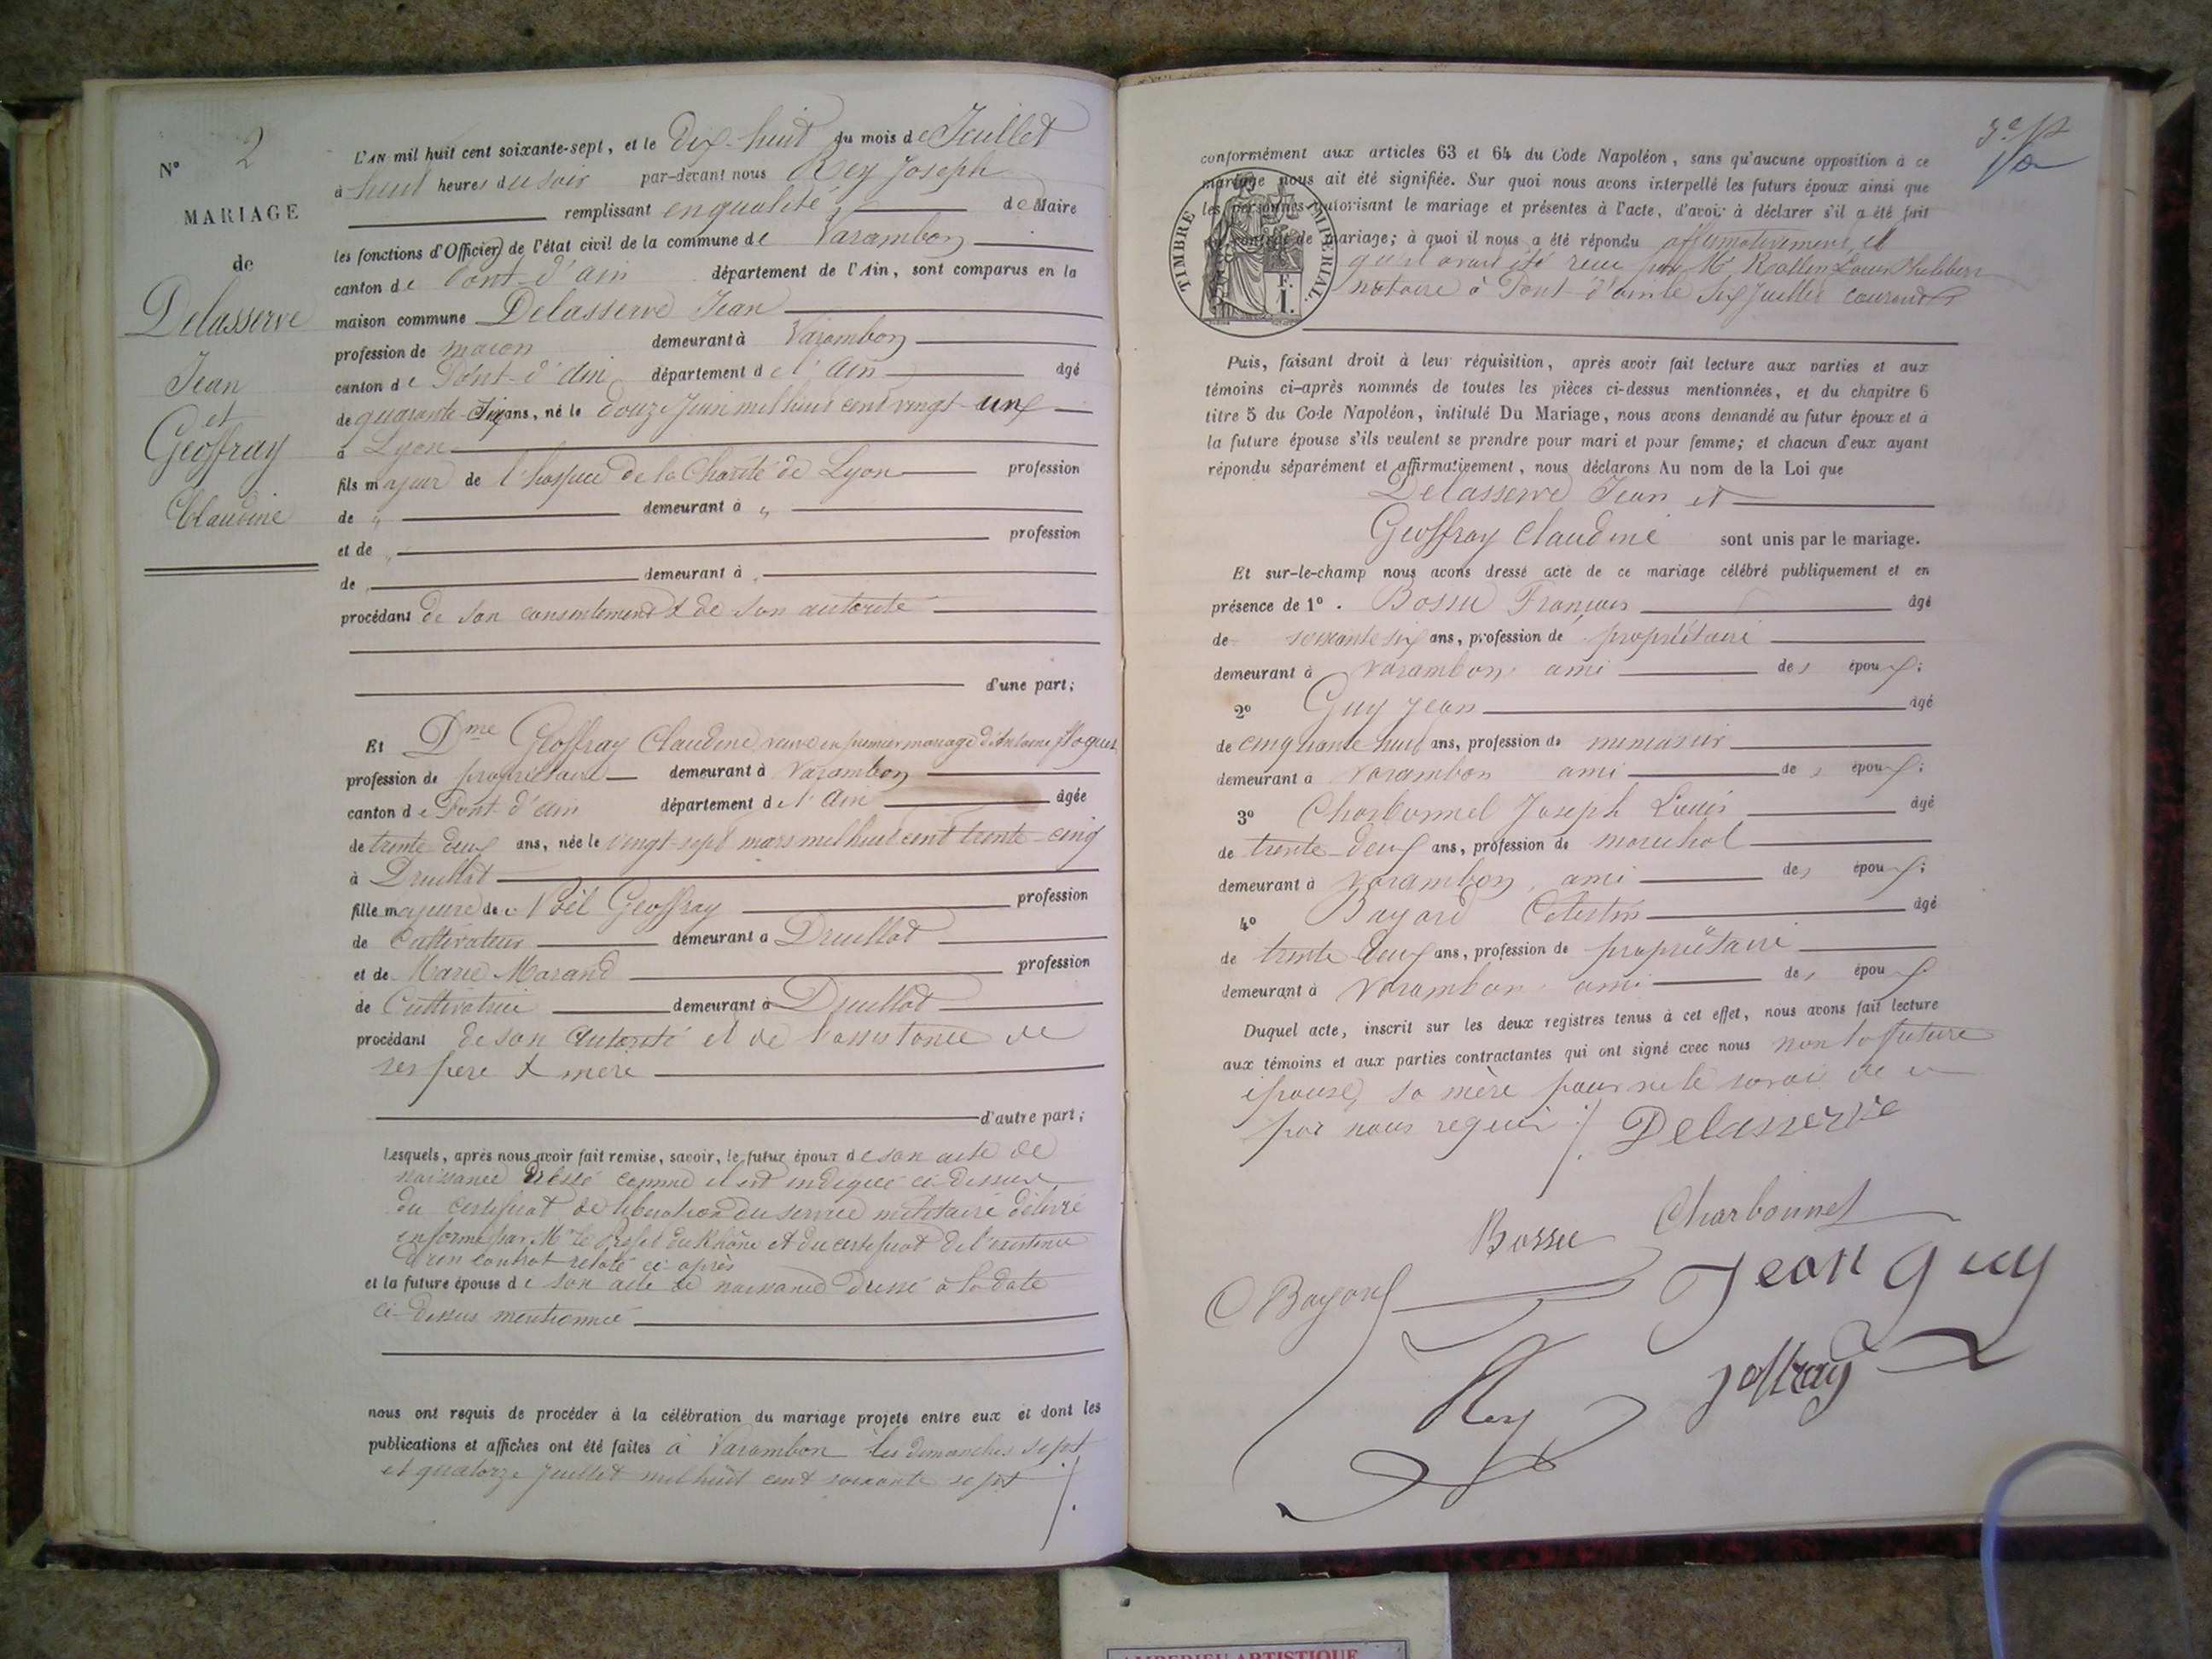 N° 2
MARIAGE
de
Delasserve
Jean
et
Geoffray
Claudine
L'AN mil huit cent soixante-sept, et le Dix-huit du mois de Juillet
à huit heures du soir par-devant nous Rey Joseph
remplissant en qualité de Maire
les fonctions d'Officier de l'état civil de la commune de Varambon
canton de Pont-d'ain département de l'Ain, sont comparus en la
maison commune Delasserve Jean
profession de maçon demeurant à Varambon
canton de Pont-d'ain département de l'Ain âgé
de quarante-six ans, né le douze Juin mil huit cent vingt-un
à Lyon
fils majeur de l'hospice de la Charité de Lyon profession
de " demeurant à "
et de " profession
de demeurant à "
procédant de son consentement & de son autorité
d'une part;
Et Dme Geoffray Claudine veuve en premier mariage d'Antoine
profession de propriétaire demeurant à Varambon
canton de Pont-d'ain département de l'Ain âgée
de trente-deux ans, née le vingt-sept mars mil huit cent trente-cinq
à Druillat
fille majeure de Noël Geoffray profession
de Cultivateur demeurant à Druillat
et de Marie Marand profession
de Cultivatrice demeurant à Druillat
procédant de son autorité et de l'assistance de
ses père & mère
d'autre part;
Lesquels, après nous avoir fait remise, savoir, le futur époux de son acte de
naissance dressé comme il est indiqué ci-dessus
du certificat de libération du service militaire délivré
en forme par Mr le Préfet du Rhône et du certificat de l'existence
d'un contrat relaté ci-après
et la future épouse de son acte de naissance dressé à la date
ci-dessus mentionnée
nous ont requis de procéder à la célébration du mariage projeté entre eux et dont les
publications et affiches ont été faites à Varambon les dimanches sept
et quatorze Juillet mil huit cent soixante sept
conformément aux articles 63 et 64 du Code Napoléon, sans qu'aucune opposition à ce
mariage nous ait été signifiée. Sur quoi nous avons interpellé les futurs époux ainsi que
les personnes autorisant le mariage et présentes à l'acte, d'avoir à déclarer s'il a été fait
un contrat de mariage; à quoi il nous a été répondu affirmativement et
qu'il avait été reçu par Me Louis Philibert
notaire à Pont-d'ain le six Juillet courant
TIMBRE IMPERIAL
F.
I.
Puis, faisant droit à leur réquisition, après avoir fait lecture aux parties et aux
témoins ci-après nommés de toutes les pièces ci-dessus mentionnées, et du chapitre 6
titre 5 du Code Napoléon, intitulé Du Mariage, nous avons demandé au futur époux et à
la future épouse s'ils veulent se prendre pour mari et pour femme; et chacun d'eux ayant
répondu séparément et affirmativement, nous déclarons Au nom de la Loi que
Delasserve Jean et
Geoffray Claudine sont unis par le mariage.
Et sur-le-champ nous avons dressé acte de ce mariage célébré publiquement et en
présence de 1° Bossu François âgé
de soixante six ans, profession de propriétaire
demeurant à Varambon ami des époux;
2° Guy Jean âgé
de cinquante huit ans, profession de menuisier
demeurant à Varambon ami des époux;
3° Charbonnel Joseph Louis âgé
de trente-deux ans, profession de maréchal
demeurant à Varambon, ami des époux;
4° Bayard Célestin âgé
de trente-deux ans, profession de propriétaire
demeurant à Varambon ami des époux
Duquel acte, inscrit sur les deux registres tenus à cet effet, nous avons fait lecture
aux témoins et aux parties contractantes qui ont signé avec nous non la future
épouse, sa mère pour ne le savoir de ce
par nous requis
Delasserve
Bossu
Charbonnel
C Bayard
Jean Guy
Rey
Joffray
AMBERIEU ARTISTIQUE